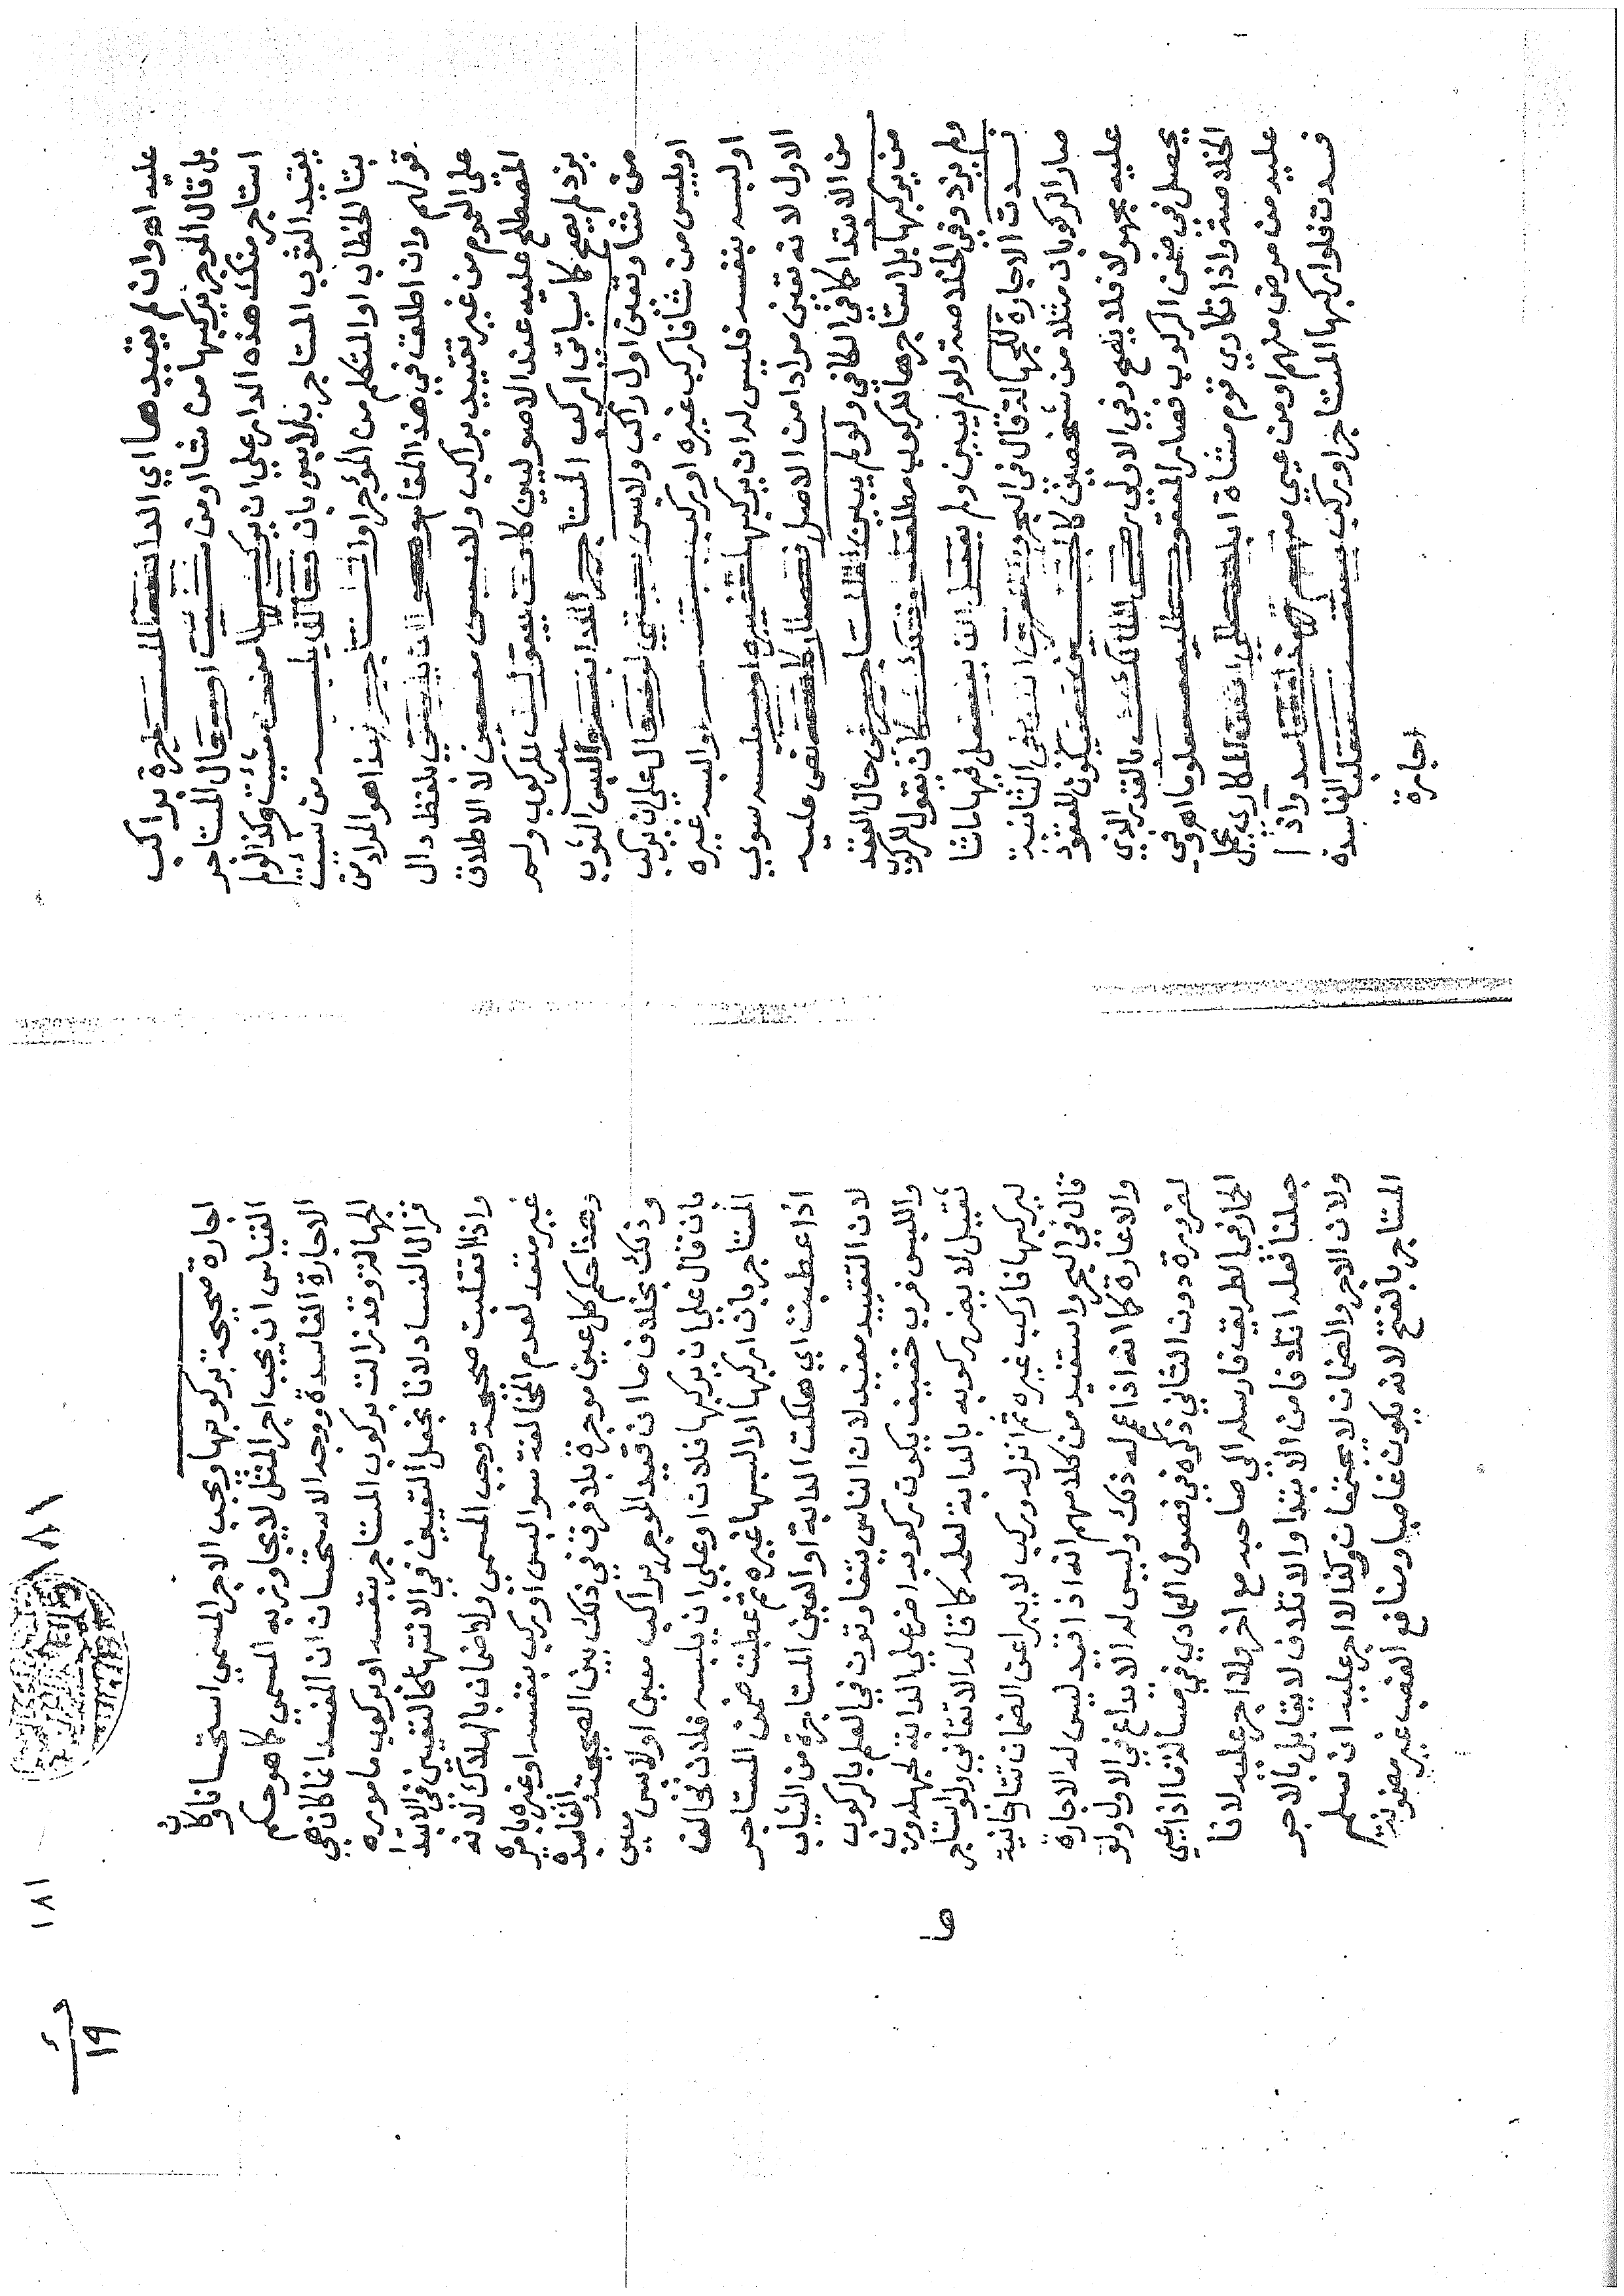 عليه اهـ وان لم يقيدها اي الدابة المستاجرة براكب
بل قال الموجر يركبها من شا او من شئت او قال المستاجر
استاجر منك هذه الدابة على ان يركبها من شئت وكذا لو لم
يقيد الثوب المستاجر بلابس بان قال يلبسه من شئت
بتا الخطاب او المتكلم من المؤجر او المستاجر هذا هو المراد من
قولهم وان اطلقت في هذا المقام لان يقضي بلفظ دال
على العموم من غير تقييد براكب ولابس معين لا الاطلاق
المصطلح عليه عند الاصوليين كانت يقول للركوب ولم
يزد لم يصح كما سياتي اركب المستاجر الدابة والبس الثوب
من شا وتعين اول راكب ولابس سيبتني لو قال على ان يركب
او يلبس من شا فاركب غيره او ركب بنفسه والبسه غيره
او لبسه بنفسه فليس له ان يركبها غيره او يلبسه سوى
الاول لانه تعين مرادا من الاصل فصار كالنص عليه
من الابتدا كما في الكافي ولو لم يبين المستاجر في حال العقد
من يركبها بل استاجرها للركوب مطلقا وذلك كان يقول للركوب
ولم يزد وفي الخلاصة ولو لم يبين ولم يقل ان يفعل فيها ما شا
فسدت الاجارة للجهالة قال في البحر والفرق ان في الثانية
صار الركوبان مثلا من شخصين كالجنسين فيكون المعقود
عليه مجهولا فلا يصح وفي الاولى رضي المالك بالقدر الذي
يحصل في ضمن الركوب فصار المعقود عليه معلوما اهـ وفي
الخلاصة واذا تكارى قوم مشاة ابلا على ان المكاري يحمل
عليه من مرض منهم او من عيي منهم فهذا فاسد واذا
فسدت فلو اركبها المستاجر او ركب بنفسه تنقلب الفاسدة
اجارة
١٨١
١٨٨١
١٩
اجارة صحيحة بركوبها ويجب الاجر المسمى استحسانا وكان
القياس ان يجب اجر المثل لا يجاوز به المسمى كما هو حكم
الاجارة الفاسدة ووجه الاستحسان ان المفسد انما كان هي
الجهالة وقد زالت بركوب المستاجر بنفسه او بركوب ماموره
فزال الفساد لانا نجعل التعيين في الانتها كالتعيين في الابتدا
واذا انقلبت صحيحة وجب المسمى ولا ضمان بالهلاك لانه
غير متعد لعدم المخالفة سوا لبس او ركب بنفسه او غيره بامره
وهذا حكم كل عين موجرة بلا فرق في ذلك بين الصحيحة والفاسدة
وذلك بخلاف ما ان قيد الموجر براكب معين او لابس معين
بان قال على ان يركبها فلان او على ان يلبسه فلان فخالف
المستاجر بان اركبها او البسها غيره ثم عطبت ضمن المستاجر
اذا عطبت اي هلكت الدابة او العين المستاجرة من الثياب
لان التقييد مفيد لان الناس يتفاوتون في العلم بالركوب
واللبس فرب خفيف يكون ركوبه اضر على الدابة لجهله ورب
ثقيل لا يضر ركوبه بالدابة لعلمه كما قاله الاتقاني ولو استاجر
ها
ليركبها فاركب غيره ثم انزله وركب لا يبرا عن الضمان تتارخانية
قال في البحر واستفيد من كلامهم انه اذا قيد ليس له الاجارة
والاعارة كما انه اذا عمم له ذلك وليس له الايداع في الاول ولو
لضرورة دون الثاني ذكره في فصول العمادي في مسالة ما اذا عيي
الحمار في الطريق فارسله الى صاحبه مع اخر ولا اجر عليه لانا
جعلنا فعله اتلافا من الابتدا والاتلاف لا يقابل بالاجر
ولان الاجر والضمان لا يجتمعان وكذا لا اجر عليه ان سلم
المستاجر بالفتح لانه يكون غاصبا ومنافع الغصب غير مضمونة